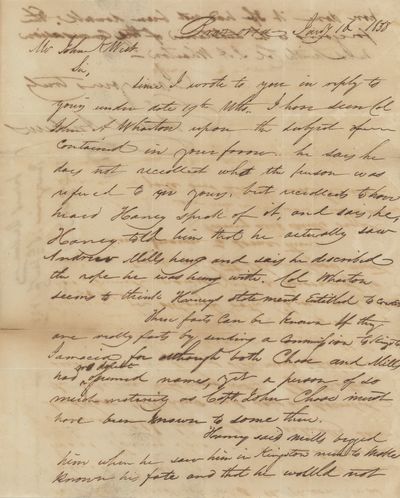 Brazoria Jany 1d 1838
Mr John A West
Sir,
Since I wrote to you in reply to
yours under date 19th Ulto. I have seen Col
John A Wharton upon the subject
Contained in your former. he says he
does not recollect who the person was
refered to in yours, but recollects to have
heard Harvey Speak of it, and says, he,
Harvey told him that he actually saw
Andrew Mills hung and says he described
the rope he was hung with. Col Wharton
seems to think Harveys statement Entitled to
These facts Can be Known If they
are really facts by sending a Commission to Kingston
Jamaica, for although both Chase and Mills
had names, yet a person of so
much notoriety as Capt John Chase must
have been known to some there.
Harvey said Mills beged
him when he saw him in Kingston never to make
Known his fate and that he would not